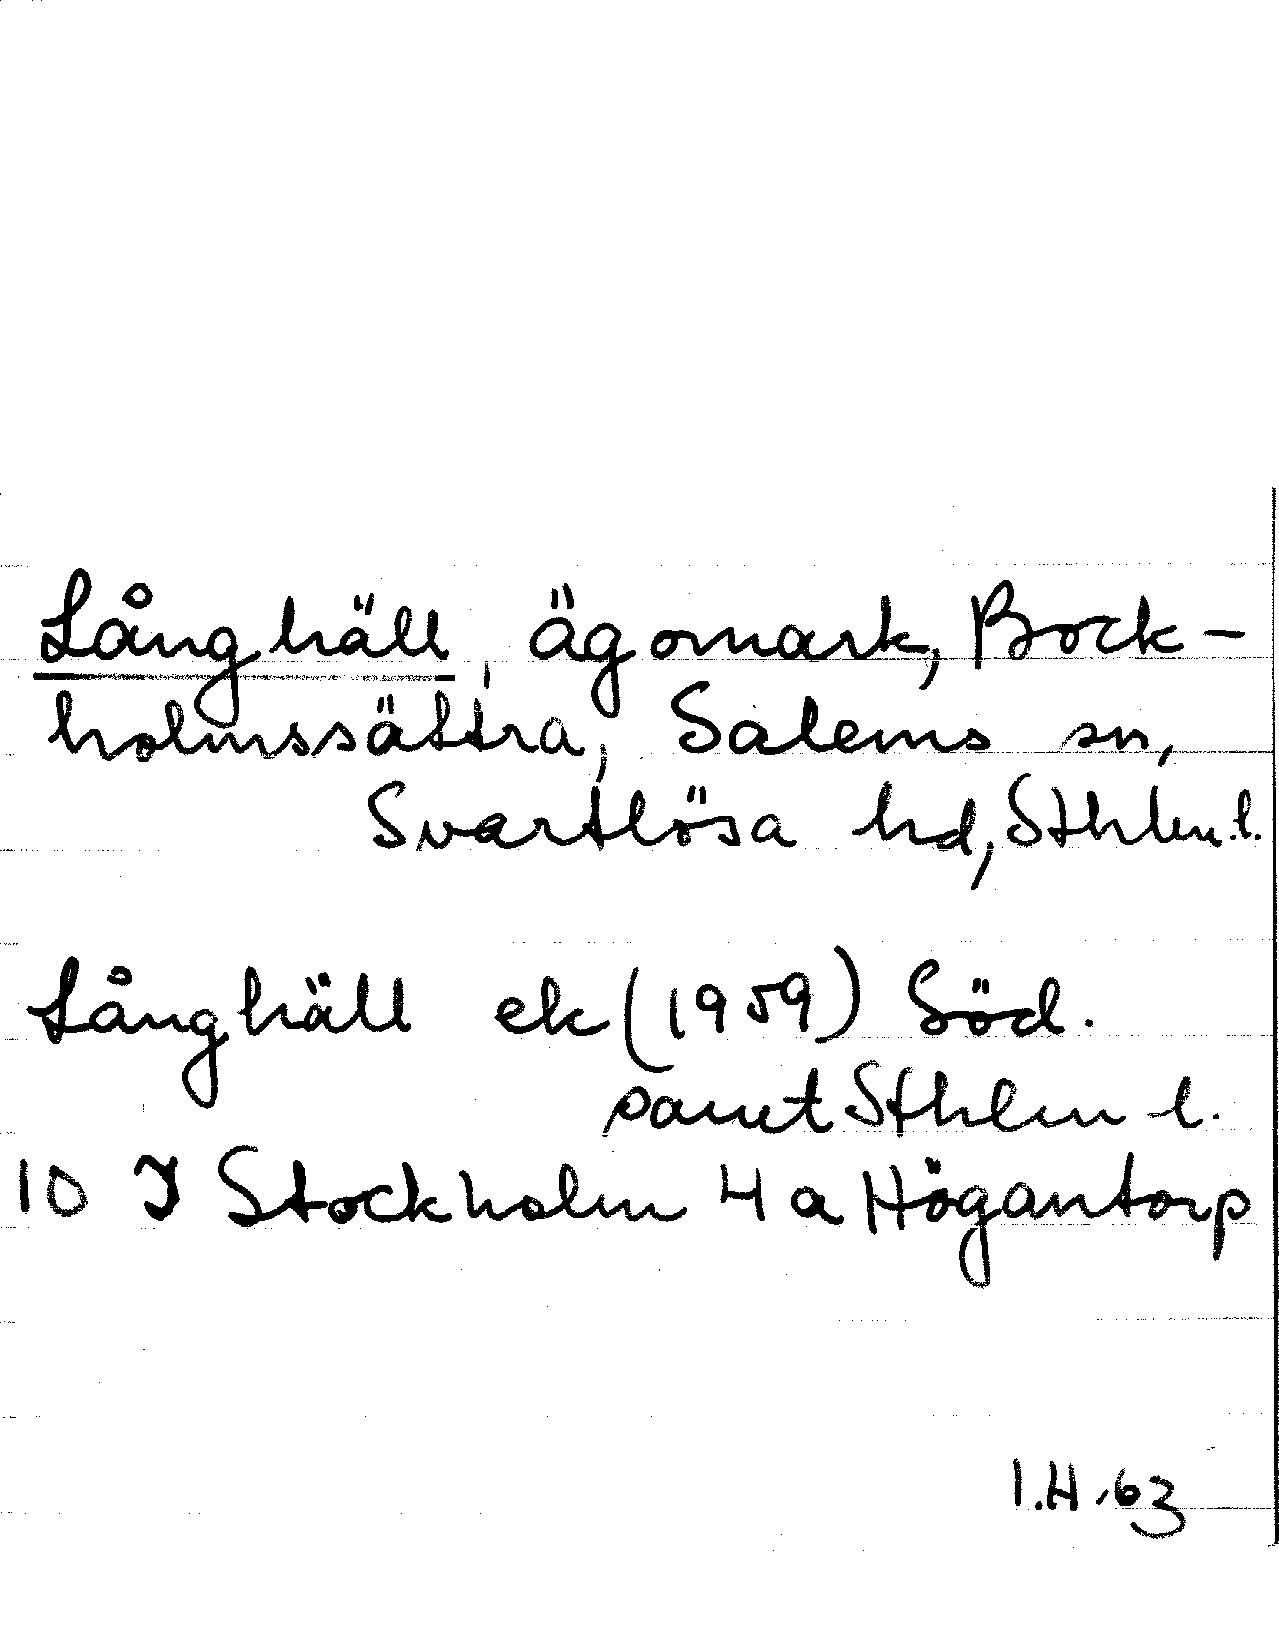 Långhäll, ägomark, Bock-
holmssättra, Salems sn,
Svartlösa hd, Sthlm.l.
Långhäll ek (1959) Söd.
samt Sthlm l.
10 I Stockholm 4 a Högantorp
I.H. 63